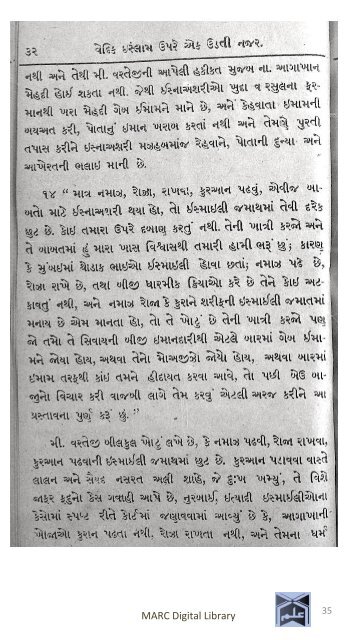 ૩૨ વેદિક ઇસ્લામ ઉપરે એક ઉડતી નજર.
નથી અને તેથી મી. વરતેજીની આપેલી હકીકત મુજબ ના. આગાખાન
મેહદી હોઈ શકતા નથી. જેથી ઇસ્નાઅશરીઓ ખુદા વ રસુલના ફર-
માનથી ખરા મેહદી ગેબ ઈમામને માને છે, અને કેહવાતા ઇમામની
બયઅત કરી, પોતાનું ઇમાન ખરાબ કરતાં નથી અને તેમણે પુરતી
તપાસ કરીને ઇસ્નાઅશરી મઝહબમાંજ રેહવાને, પોતાની દુન્યા અને
આખેરતની ભલાઇ માની છે.
૧૪ " માત્ર નમાઝ, રોઝા, રાખવા, કુરઆન પઢવું, એવીજ બા-
બતો માટે ઇસ્નાઅશરી થયા હો, તો ઇસ્માઇલી જમાથમાં તેવી દરેક
છુટ છે. કોઇ તમારા ઉપરે દબાણ કરતું નથી. તેની ખાત્રી કરજો અને
તે બાબતમાં હું મારા ખાસ વિશ્વાસથી તમારી હામી ભરૂં છું; કારણ
કે મુંબઇમાં થોડાક ભાઇઓ ઇસ્માઇલી હોવા છતાં; નમાઝ પઢે છે,
રોઝા રાખે છે, તથા બીજી ધારમીક ક્રિયાઓ કરે છે તેને કોઇ અટ-
કાવતું નથી, અને નમાઝ રોઝા કે કુરાને શરીફની ઇસ્માઇલી જમાતમાં
મનાય છે એમ માનતા હો, તો તે ખોટું છે તેની ખાત્રી કરજો પણ
જો તમો તે સિવાયની બીજી ઇમાનદારીથી એટલે બારમાં ગેબ ઇમા-
મને જોયા હોય, અથવા તેનો મોઅજીઝો જોયો હોય, અથવા બારમાં
ઇમામ તરફથી કાંઇ તમને હીદાયત કરવા આવે, તો પછી બેઉ બા-
જુનો વિચાર કરી વાજબી લાગે તેમ કરવું એટલી અરજ કરીને આ
પ્રસ્તાવના પુર્ણ કરૂં છું. "
મી. વરતેજી બીલકુલ ખોટું લખે છે, કે નમાઝ પઢવી, રોઝા રાખવા,
કુરઆન પઢવાની ઇસ્માઇલી જમાથમાં છુટ છે. કુરઆન પઢાવવા વાસ્તે
લાલન અને સૈયદ નસરત અલી શાહે, જે દુઃખ ખમ્યું, તે વિશે
જાફર ફદુનો કેસ ગવાહી આપે છે, નુરબાઈ, ઇત્યાદી ઇસ્માઈલીઓના
કેસોમાં સ્પષ્ટ રીતે કોર્ટમાં જણાવવામાં આવ્યું છે કે, આગાખાની
ખોજાઓ કુરાન પઢતા નથી. રોઝા રાખતા નથી, અને તેમના ધર્મ
MARC Digital Library
35